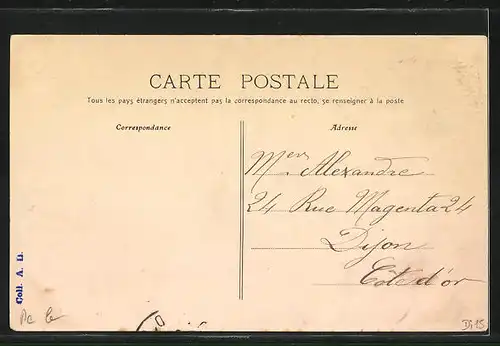 CARTE POSTALE
Tous les pays étrangers n'acceptent pas la correspondance au recto, se renseigner à la poste
Correspondance
Adresse
Alexandre
24 Rue Magenta 24
Dijon
Côte d'or
Coll. A. D.